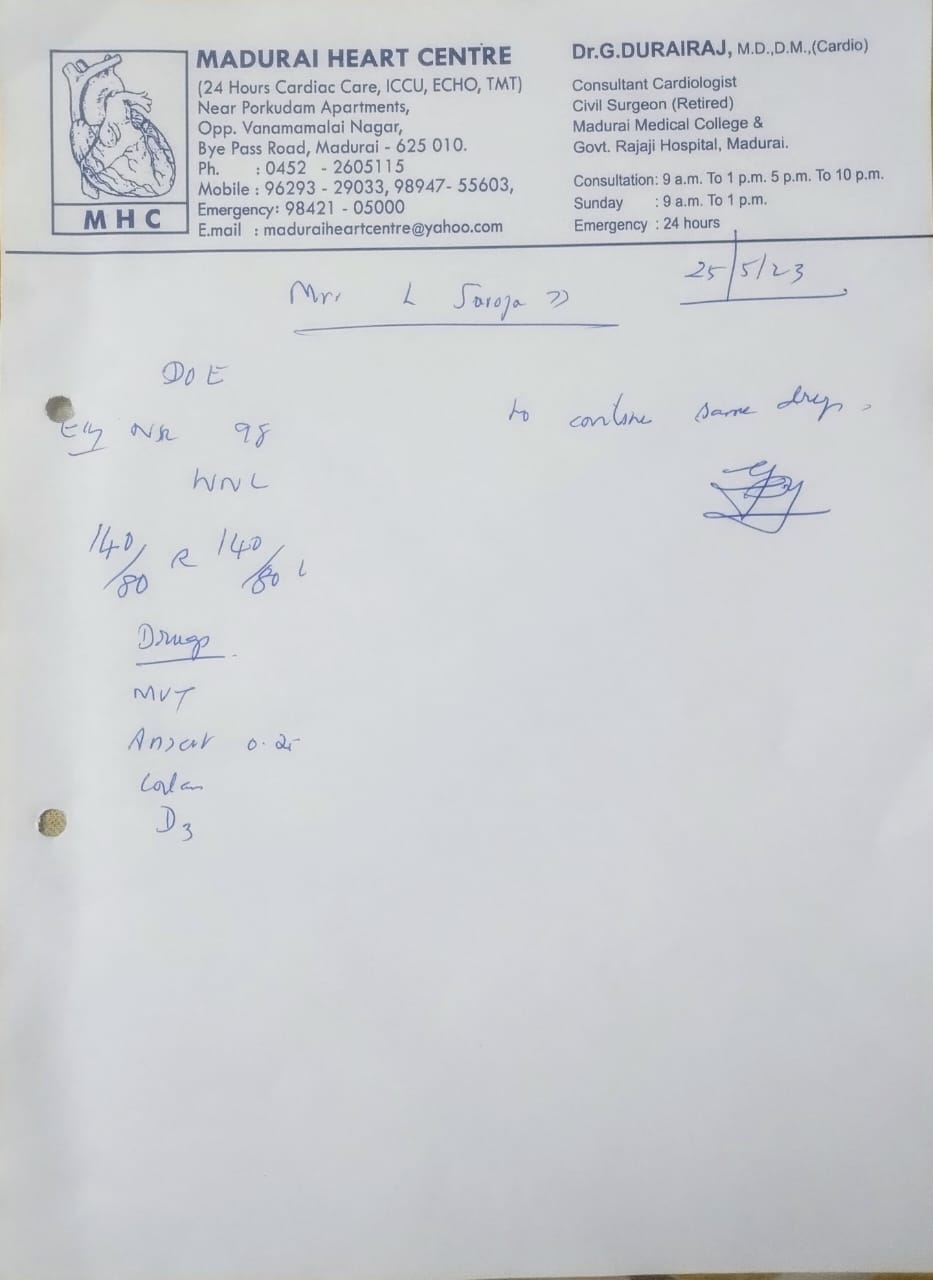 MADURAI HEART CENTRE
(24 Hours Cardiac Care, ICCU, ECHO, TMT)
Near Porkudam Apartments,
Opp. Vanamamalai Nagar,
Bye Pass Road, Madurai - 625 010.
Ph. : 0452 - 2605115
Mobile : 96293 - 29033, 98947- 55603,
Emergency: 98421 - 05000
E.mail : maduraiheartcentre@yahoo.com
MHC
Dr.G.DURAIRAJ, M.D.,D.M.,(Cardio)
Consultant Cardiologist
Civil Surgeon (Retired)
Madurai Medical College &
Govt. Rajaji Hospital, Madurai.
Consultation: 9 a.m. To 1 p.m. 5 p.m. To 10 p.m.
Sunday : 9 a.m. To 1 p.m.
Emergency : 24 hours
25/5/23
L Saroja
DOE
98
WNL
140/80 R 140/80 L
Drugs
MVT
0.25
D3
to continue same drugs.